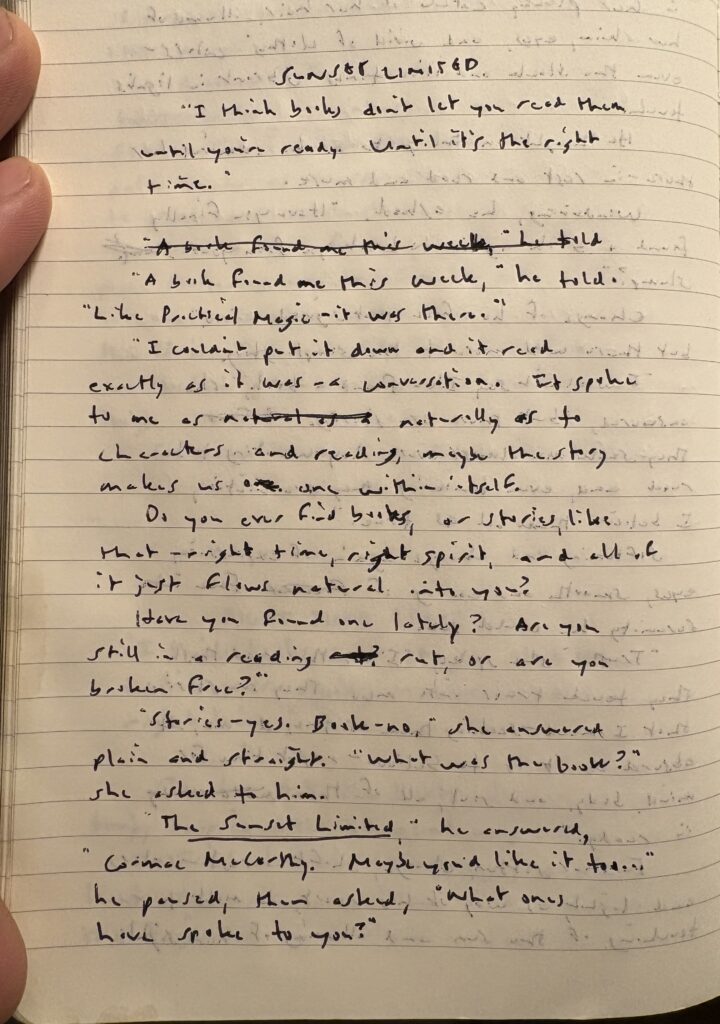 SUNSET LIMITED
"I think books don't let you read them
until you're ready. Until it's the right
time."
"A book found me this week," he told
"A book found me this week," he told.
"Like Practical Magic - it was there."
"I couldn't put it down and it read
exactly as it was - a conversation. It spoke
to me as natural as a naturally as to
characters and reading, maybe the story
makes us one within itself.
Do you ever find books, or stories, like
that - right time, right spirit, and all of
it just flows natural into you?
Have you found one lately? Are you
still in a reading rut, or are you
broken free?"
"Stories - yes. Book - no," she answered
plain and straight. "What was the book?"
she asked to him.
"The Sunset Limited," he answered,
"Cormac McCarthy. Maybe you'd like it too..."
he paused, then asked, "What ones
have spoke to you?"